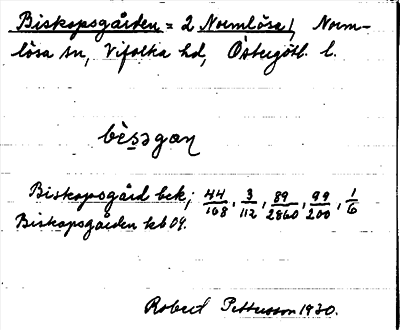 Biskopsgården = 2 Normlösa, Norm-
lösa sn, Vifolka hd, Östergötl. l.
Biskopsgård bek; 44/168, 3/112, 89/2860, 99/200, 1/6
Biskopsgården kb 04.
Robert Pettersson 1930.